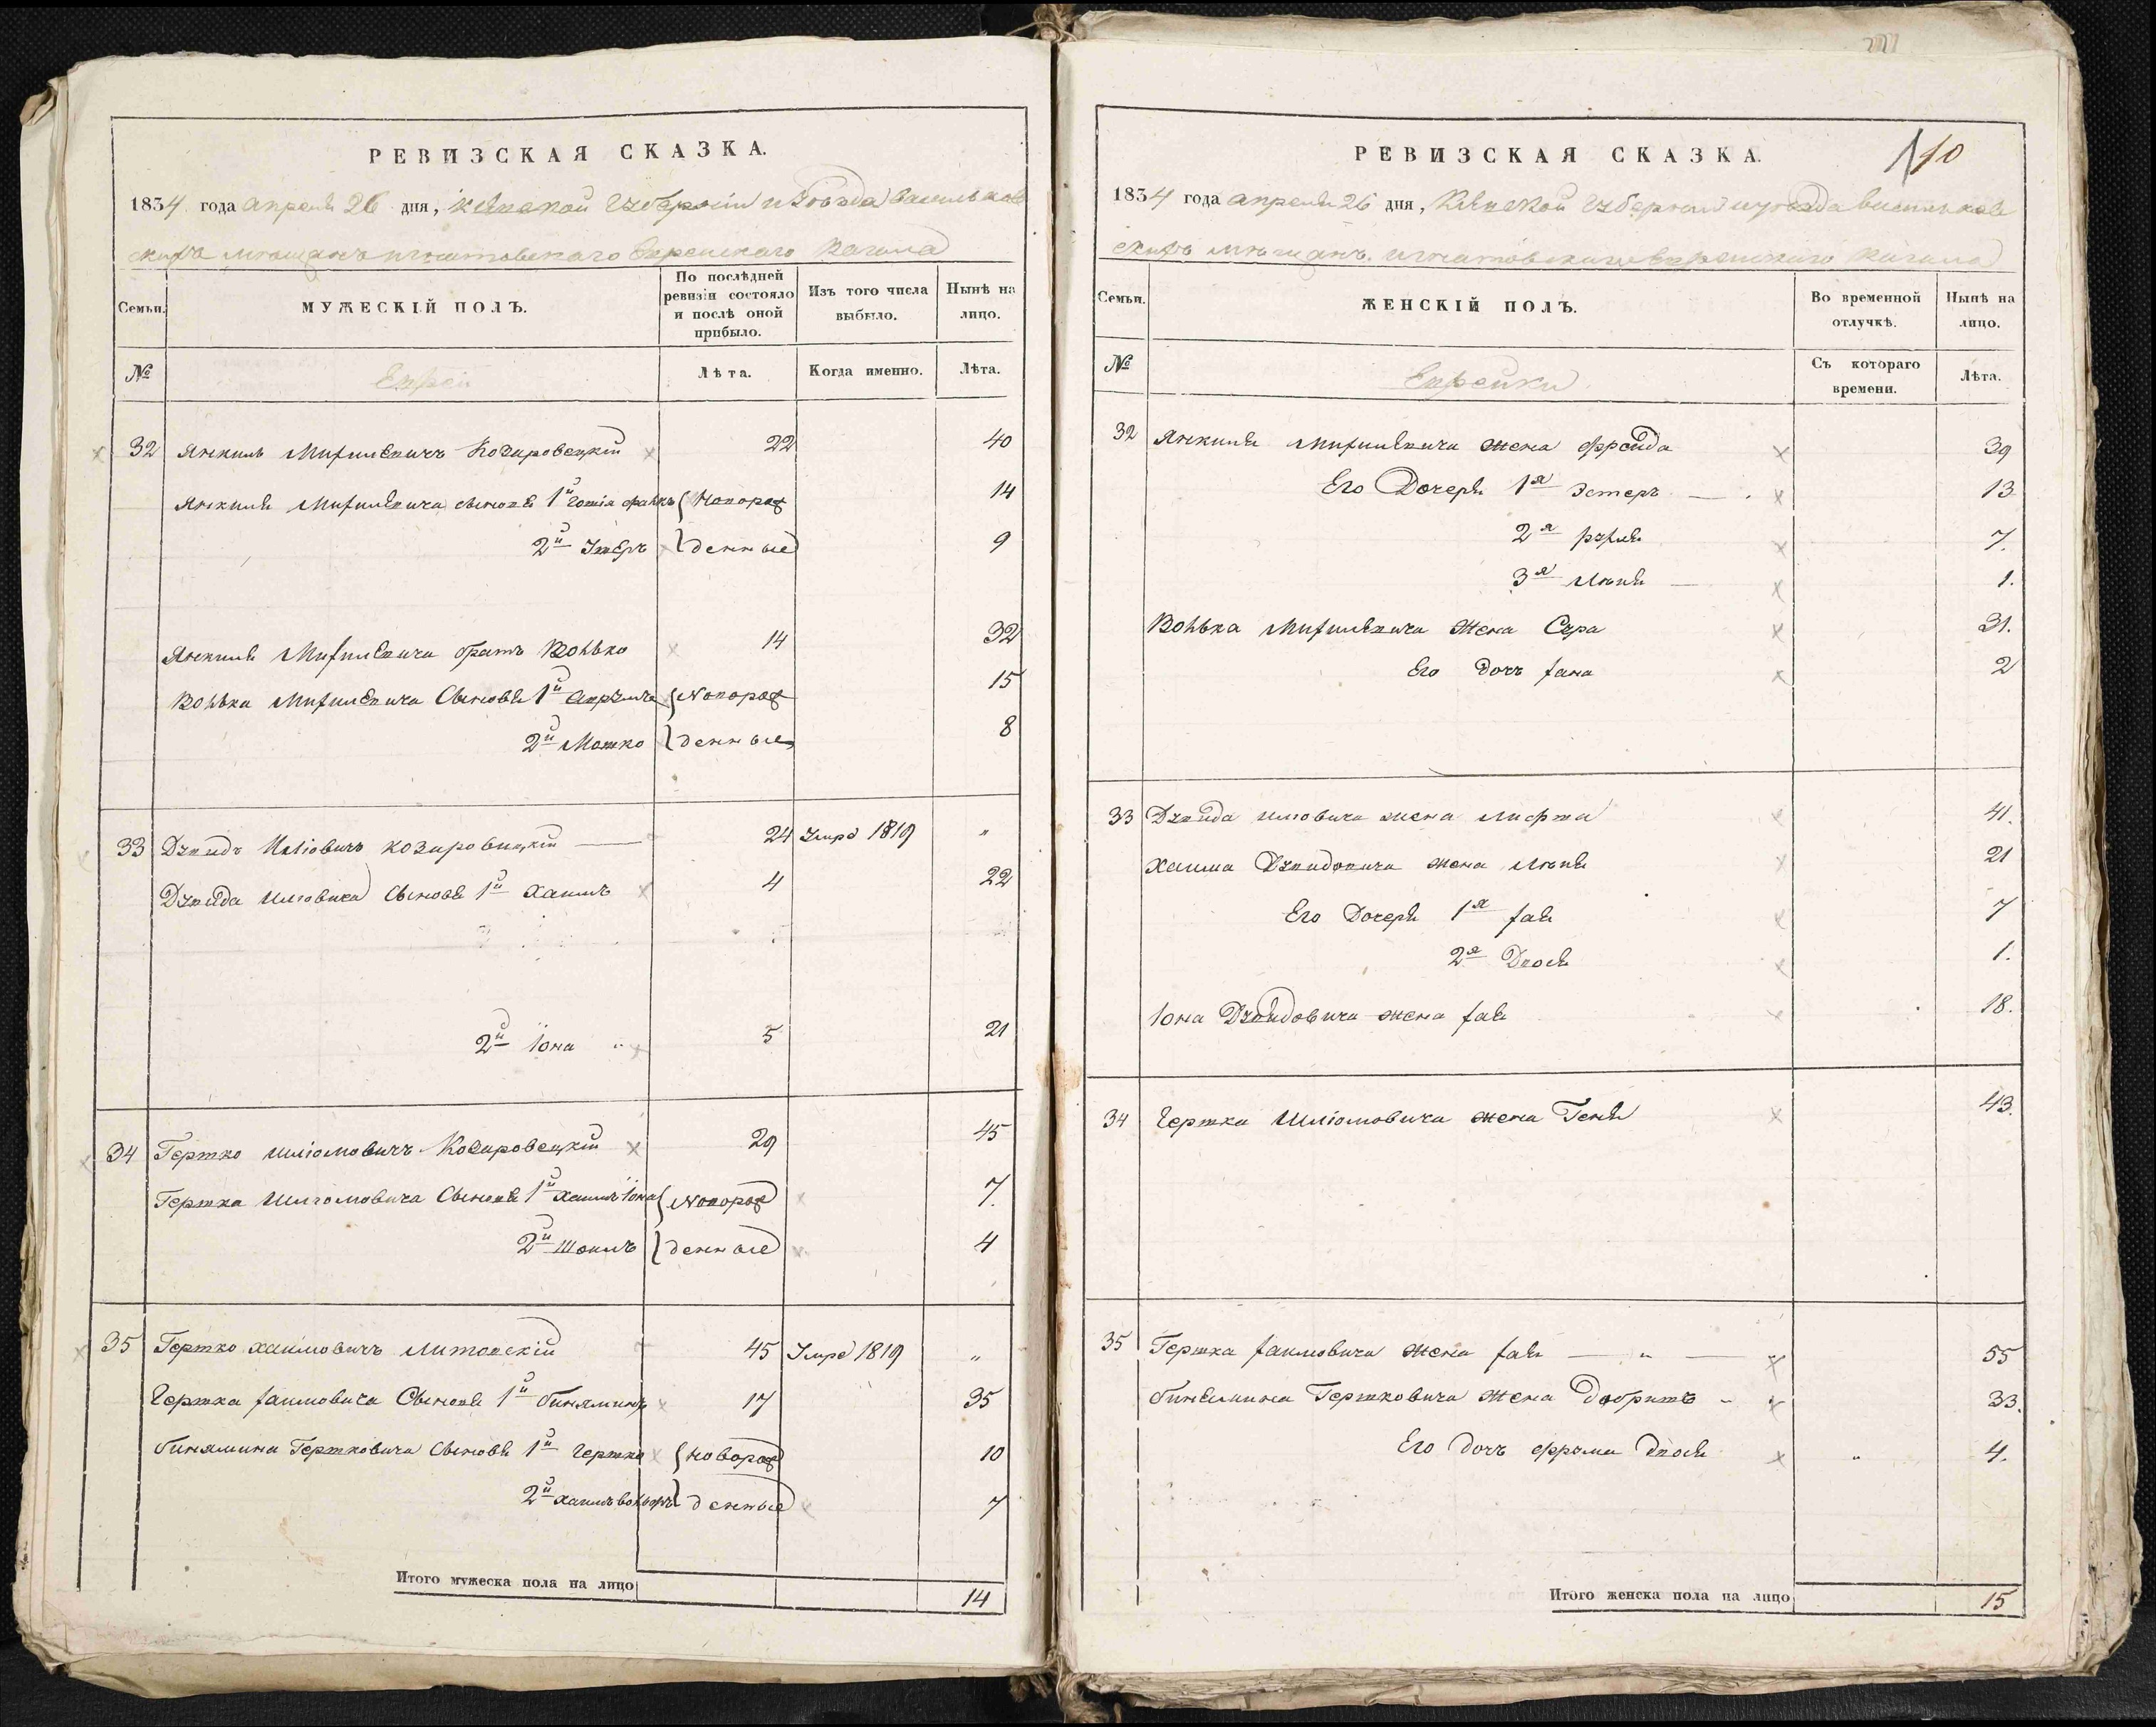 РЕВИЗСКАЯ СКАЗКА.
1834 года апреля 26 дня, Киевской Губернии и уѣзда васильков
скихъ мѣщанъ игнатовскаго Еврейскаго Кагала
Семьи.
МУЖЕСКІЙ ПОЛЪ.
По послѣдней ревизіи состояло и послѣ оной прибыло.
Изъ того числа выбыло.
Нынѣ на лицо.
№
Евреи
Лѣта.
Когда именно.
Лѣта.
32 Янкиль Михилевичъ Козаровецкій 22 40
Янкиля Михилевича сыновя 1й новорож 14
2й денные 9
Янкиля Михилевича братъ Волько 14 32
Волька Михилевича Сыновя 1й новорож 15
2й Мошко денные 8
33 Дувидъ Иліовичъ козаровицкій 24 Умре 1819 "
Дувида Илловича Сыновя 1й Хаимъ 4 22
2й Iона " 5 21
34 Гершко Шліомовичъ Козаровецкій 29 45
Гершка Шлгомовича Сыновя 1й хаимъ Iона новорож 7.
2й денные 4
35 Гершко хаимовичъ литовскій 45 Умре 1819 "
Гершка хаимовича Сыновя 1й биняминъ 17 35
бинямина Гершковича Сыновя 1й Гершко новорож 10
2й денные 7
Итого мужеска пола на лицо 14
РЕВИЗСКАЯ СКАЗКА.
110
1834 года апреля 26 дня, Киевской Губернии и уѣзда васильков
скихъ мѣщанъ. игнатовскаго Еврейскаго Кагала
Семьи.
ЖЕНСКІЙ ПОЛЪ.
Во временной отлучкѣ.
Нынѣ на лицо.
№
Еврейки
Съ котораго времени.
Лѣта.
32 Янкиля Михилевича жена фрейда 39
Его Дочеря 1я Эстеръ 13
2я рухля 7.
3я 1.
Волька Михилевича Жена Сура 31.
Его Дочъ хана 2
33 Дувида Иловича жена 41.
хаима Дувидовича жена 21
Его Дочеря 1я хая 7
2я Двося 1.
Iона Дувидовича жена хая 18.
34 Гершка Шліомовича жена Геня 43.
35 Гершка хаимовича жена хая " 55
бинемина Гершковича жена Добришъ " 33.
Его Дочъ фрума Двося " 4.
Итого женска пола на лицо 15